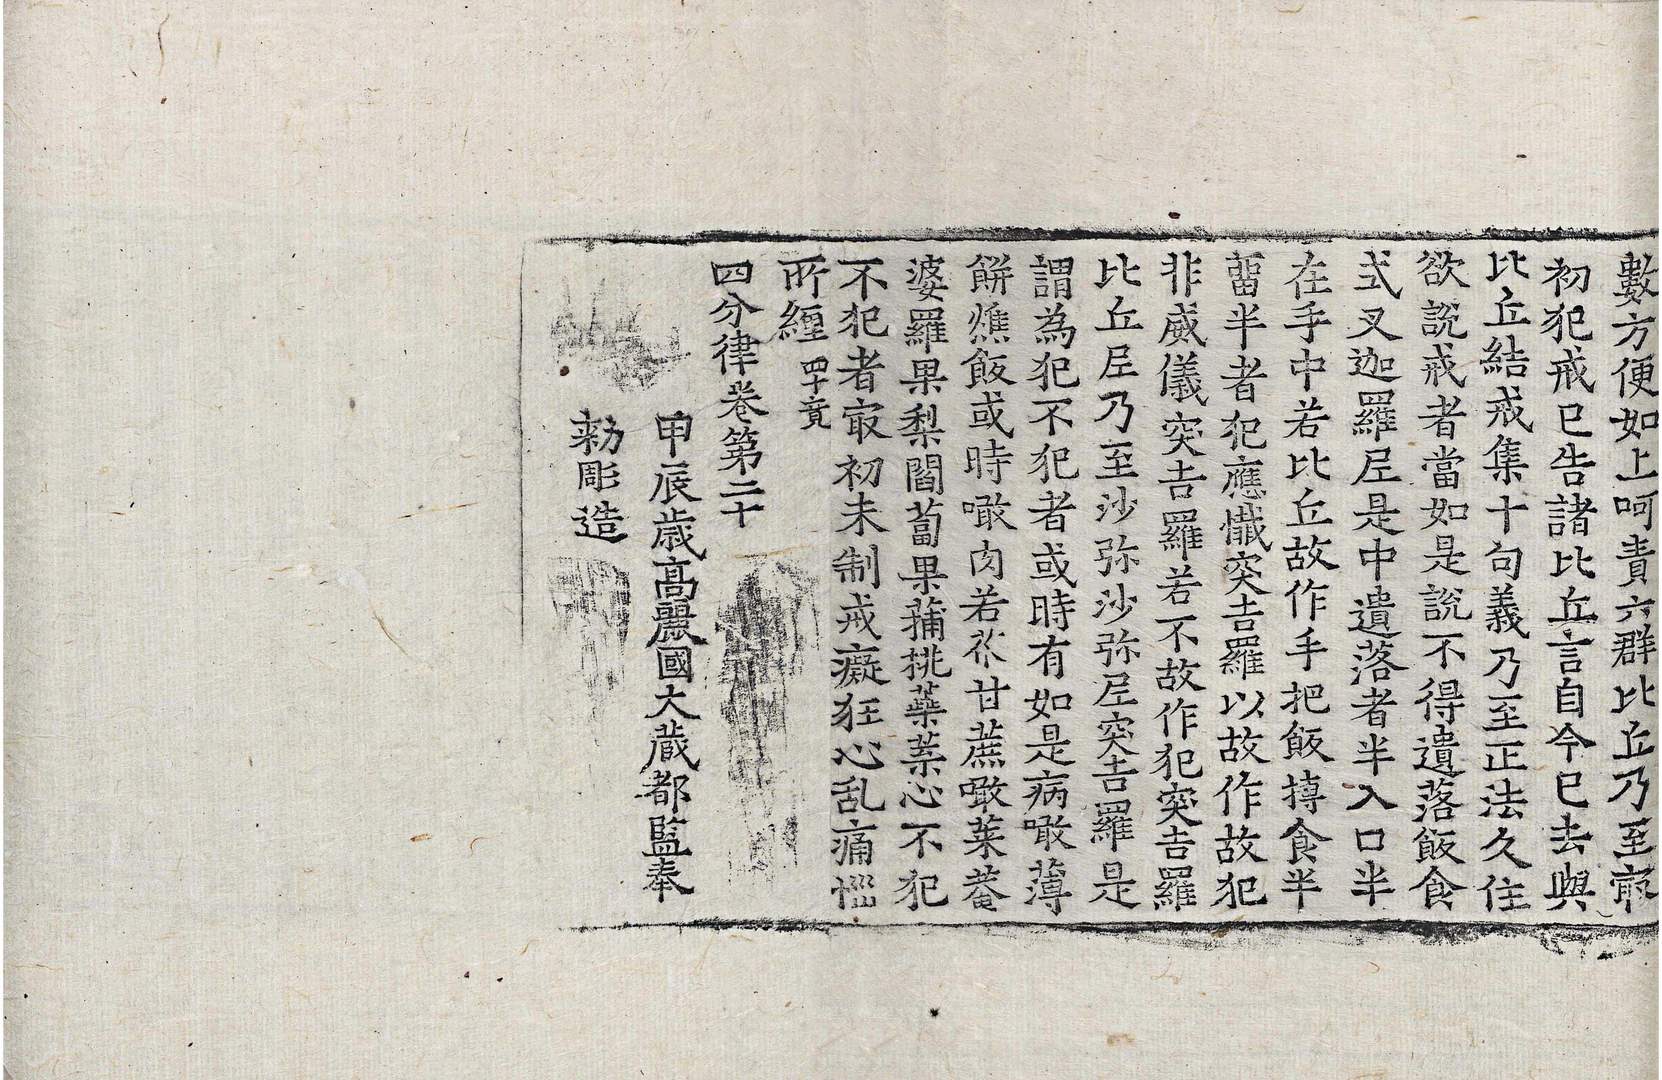 數方便如上呵責六群比丘乃至㝡
初犯戒已告諸比丘言自今已去與
比丘結戒集十句義乃至正法久住
欲說戒者當如是說不得遺落飯食
式叉迦羅尼是中遺落者半入口半
在手中若比丘故作手把飯摶食半
留半者犯應懺突吉羅以故作故犯
非威儀突吉羅若不故作犯突吉羅
比丘尼乃至沙弥沙弥尼突吉羅是
謂為犯不犯者或時有如是病噉薄
餅燋飯或時噉肉若苽甘蔗噉菜菴
婆羅果梨閻蔔果蒲桃蘂葉心不犯
不犯者㝡初未制戒癡狂心乱痛惱
所纏四十竟
四分律卷第二十
甲辰歲高麗國大藏都監奉
勑彫造